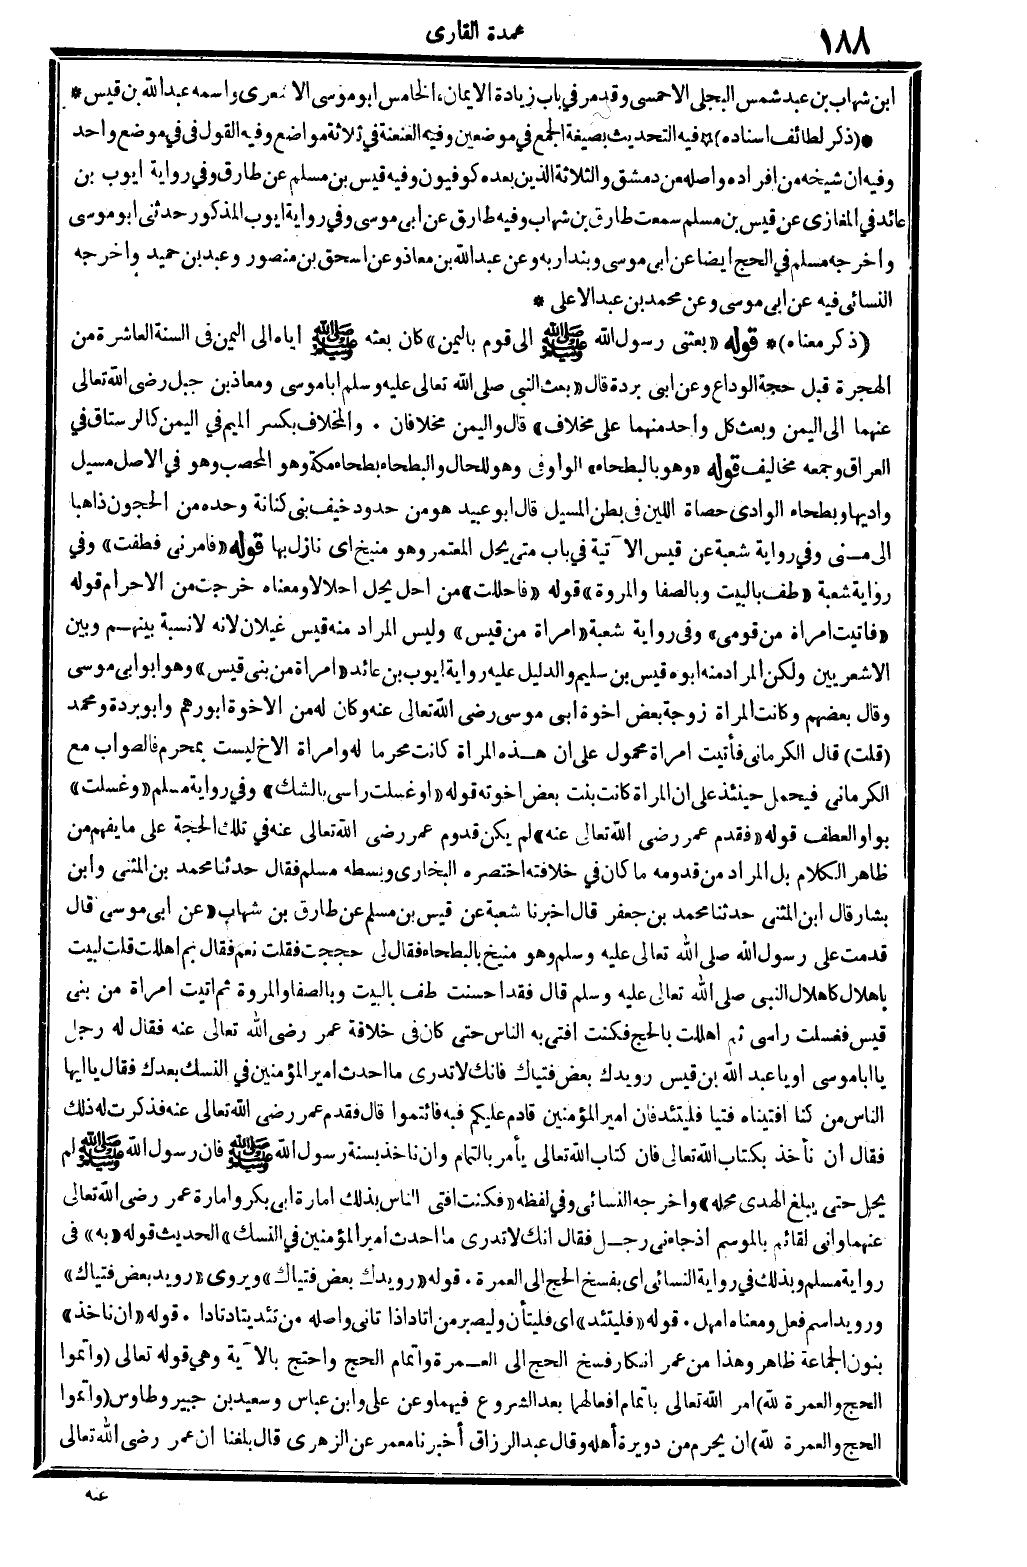 ١٨٨
عمدة القارى
ابن شهاب بن عبد شمس البجلى الاحمسى وقد مر في باب زيادة الايمان، الخامس ابو موسى الاشعرى واسمه عبد الله بن قيس *
*(ذكر لطائف اسناده)* فيه التحديث بصيغة الجمع في موضعين وفيه العنعنة في ثلاثة مواضع وفيه القول في في موضع واحد
وفيه ان شيخه من افراده واصله من دمشق والثلاثة الذين بعده كوفيون وفيه قيس بن مسلم عن طارق وفي رواية ايوب بن
عائد في المغازى عن قيس بن مسلم سمعت طارق بن شهاب وفيه طارق عن ابى موسى وفي رواية ايوب المذكور حدثنى ابو موسى
وأخرجه مسلم في الحج ايضا عن ابى موسى وبندار به وعن عبد الله بن معاذ وعن اسحق بن منصور وعبد بن حميد وأخرجه
النسائى فيه عن ابى موسى وعن محمد بن عبد الاعلى *
(ذكر معناه)* قوله «بعثنى رسول الله ﷺ الى قوم باليمن» كان بعثه ﷺ اياه الى اليمن فى السنة العاشرة من
الهجرة قبل حجة الوداع وعن ابى بردة قال «بعث النبى صلى الله تعالى عليه وسلم ابا موسى ومعاذ بن جبل رضى الله تعالى
عنهما الى اليمن وبعث كل واحد منهما على مخلاف» قال واليمن مخلافان . والمخلاف بكسر الميم في اليمن كالرستاق في
العراق وجمعه مخاليف قوله «وهو بالبطحاء» الواو فى وهو للحال والبطحاء بطحاء مكة وهو المحصب وهو في الاصل مسيل
واديها وبطحاء الوادى حصاة اللين فى بطن المسيل قال ابو عبيد هو من حدود خيف بنى كنانة وحده من الحجون ذاهبا
الى مــنى وفي رواية شعبة عن قيس الآتية في باب متى يحل المعتمر وهو منيخ اى نازل بها قوله «فامرنى فطفت» وفي
رواية شعبة «طف بالبيت وبالصفا والمروة» قوله «فاحللت» من احل يحل احلالا ومعناه خرجت من الاحرام قوله
«فاتيت امرأة من قومى» وفى رواية شعبة «امرأة من قيس» وليس المراد منه قيس غيلان لانه لا نسبة بينهـم وبين
الاشعريين ولكن المراد منه ابوه قيس بن سليم والدليل عليه رواية ايوب بن عائد «امرأة من بنى قيس» وهو ابو ابى موسى
وقال بعضهم وكانت المرأة زوجة بعض اخوة ابى موسى رضى الله تعالى عنه وكان له من الاخوة ابو رهم وابو بردة ومحمد
(قلت) قال الكرمانى فأتيت امرأة محمول على ان هــذه المرأة كانت محرما له وامرأة الاخ ليست بمحرم فالصواب مع
الكرمانى فيحمل حينئذ على ان المرأة كانت بنت بعض اخوته قوله «او غسلت راسى بالشك» وفي رواية مسلم «وغسلت»
بواو العطف قوله «فقدم عمر رضى الله تعالى عنه» لم يكن قدوم عمر رضى الله تعالى عنه في تلك الحجة على ما يفهم من
ظاهر الكلام بل المراد من قدومه ما كان في خلافته اختصره البخارى وبسطه مسلم فقال حدثنا محمد بن المثنى وابن
بشار قال ابن المثنى حدثنا محمد بن جعفر قال اخبرنا شعبة عن قيس بن مسلم عن طارق بن شهاب «عن ابى موسى قال
قدمت على رسول الله صلى الله تعالى عليه وسلم وهو منيخ بالبطحاء فقال لى حججت فقلت نعم فقال بم اهللت قلت لبيت
باهلال كاهلال النبى صلى الله تعالى عليه وسلم قال فقد احسنت طف بالبيت وبالصفا والمروة ثم اتيت امرأة من بنى
قيس فغسلت رأسى ثم اهللت بالحج فكنت افتى به الناس حتى كان فى خلافة عمر رضى الله تعالى عنه فقال له رجل
يا ابا موسى او يا عبد الله بن قيس رويدك بعض فتياك فانك لا تدرى ما احدث امير المؤمنين في النسك بعدك فقال يا ايها
الناس من كنا افتيناه فتيا فليتئد فان امير المؤمنين قادم عليكم فبه فائتموا قال فقدم عمر رضى الله تعالى عنه فذكرت له ذلك
فقال أن نأخذ بكتاب الله تعالى فان كتاب الله تعالى يأمر بالتمام وان ناخذ بسنة رسول الله ﷺ فان رسول الله ﷺ لم
يحل حتى يبلغ الهدى محله» واخرجه النسائى وفي لفظه «فكنت افتى الناس بذلك امارة ابى بكر وامارة عمر رضى الله تعالى
عنهما وانى لقائم بالموسم اذ جاءنى رجــل فقال انك لا تدرى ما احدث امير المؤمنين في النسك» الحديث قوله «به» فى
رواية مسلم وبذلك في رواية النسائى اى بفسخ الحج الى العمرة . قوله «رويدك بعض فتياك» ويروى «رويد بعض فتياك»
ورويد اسم فعل ومعناه امهل . قوله «فليتئد» اى فليتأن وليصبر من اتاد اذا تانى واصله من تئد يتاد تادا . قوله «ان ناخذ»
بنون الجماعة ظاهر وهذا من عمر انكار فسخ الحج الى العــمرة واتمام الحج واحتج بالآية وهي قوله تعالى (واتموا
الحج والعمرة لله) امر الله تعالى باتمام افعالهما بعد الشروع فيهما وعن على وابن عباس وسعيد بن جبير وطاوس (واتموا
الحج والعمرة لله) ان يحرم من دويرة أهله وقال عبد الرزاق أخبرنا معمر عن الزهرى قال بلغنا ان عمر رضى الله تعالى
عنه